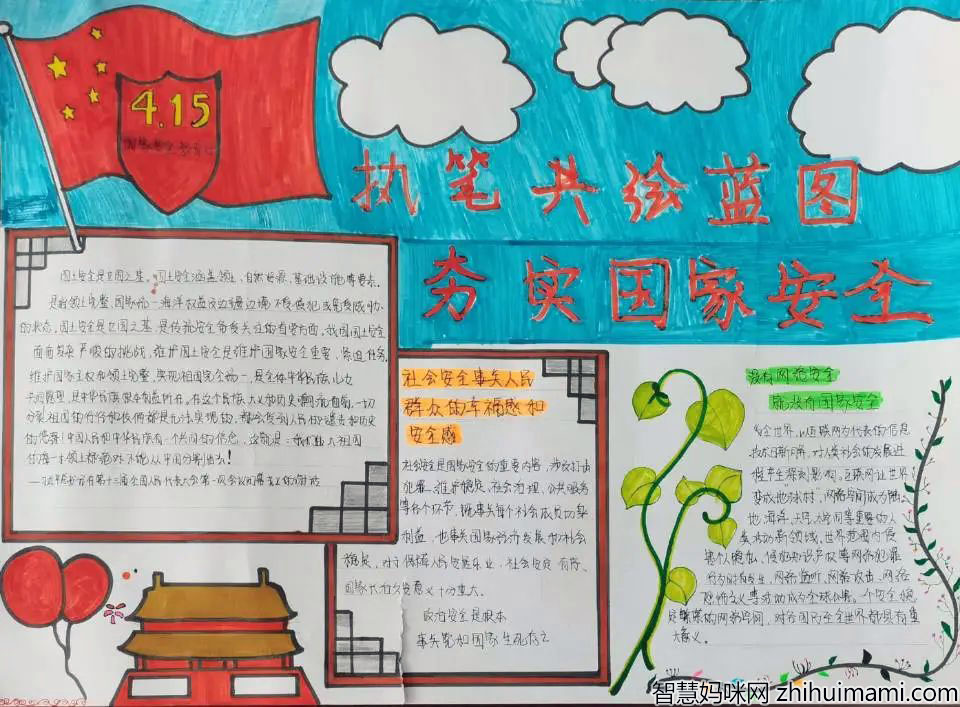 4.15
执笔共绘蓝图
夯实国家安全
国土安全是立国之基。国土安全涵盖领土、自然资源、基础设施等要素。
是指领土完整、国家统一、海洋权益及边疆边境不受侵犯或免受威胁
的状态。国土安全是立国之基,是传统安全备受关注的首要方面,我国国土安全
面临着严峻的挑战,维护国土安全是维护国家安全重要、紧迫任务
维护国家主权和领土完整,实现祖国完全统一,是全体中华儿女
共同愿望,是中华民族根本利益所在。在这个民族大义和历史潮流面前,一切
分裂祖国的行径和伎俩都是无法实现的,都会受到人民的谴责和历史
的惩罚!中国人民和中华民族有一个共同的信念,这就是:我们伟大祖国
的每一寸领土都绝对不能从中国分割出去!
社会安全事关人民
群众的幸福感和
安全感
社会安全是国家安全的重要内容,涉及打击
犯罪、维护稳定、社会治理、公共服务
等各个环节,既事关每个社会成员切身
利益,也事关国家经济发展和社会
稳定,对于保障人民安居乐业、社会安定有序、
国家长治久安意义十分重大。
政治安全是根本
事关党和国家生死存亡
没有网络安全
就没有国家安全
当今世界,以互联网为代表的信息
技术日新月异,对人类社会的发展进
程产生深刻影响,互联网让世界
变成“地球村”,网络空间成为陆
地、海洋、天空、太空同等重要的人
类活动新领域,世界范围内侵
害个人隐私、侵犯知识产权等网络犯罪
时有发生,网络监听、网络攻击、网络
恐怖主义等活动成为全球公害。一个安全稳
定繁荣的网络空间,对各国乃至全世界都具有重
大意义。
智慧妈咪网 zhihuimami.com